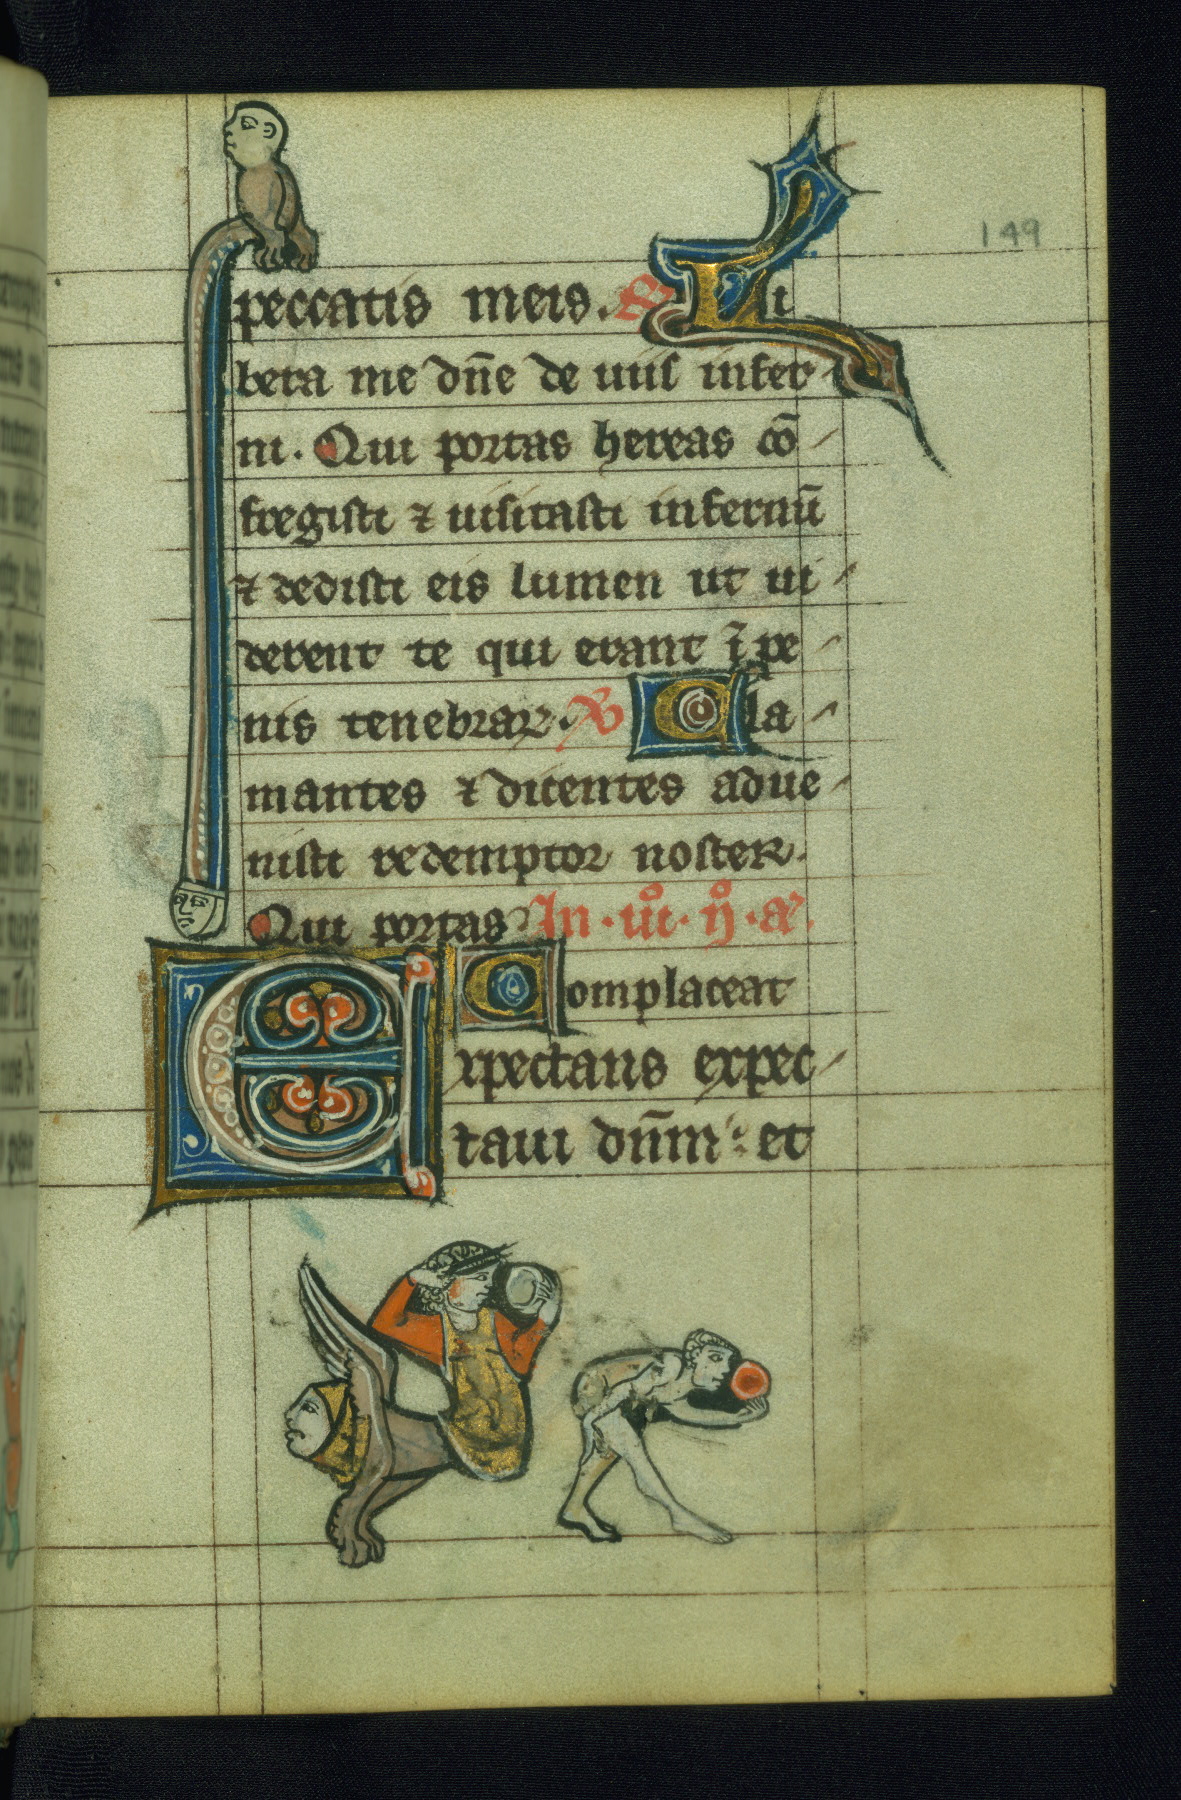 149
peccatis meis. R Li
bera me dñe de uiis infer
ni. Qui portas hereas cō
fregisti ⁊ uisitasti infernū
⁊ dedisti eis lumen ut ui
derent te qui erant ī pe
nis tenebraꝝ. V Cla
mantes ⁊ dicentes adue
nisti redemptor noster.
Qui portas In .iii. n. a.
Complaceat
Expectans expec
taui dn̄m: et